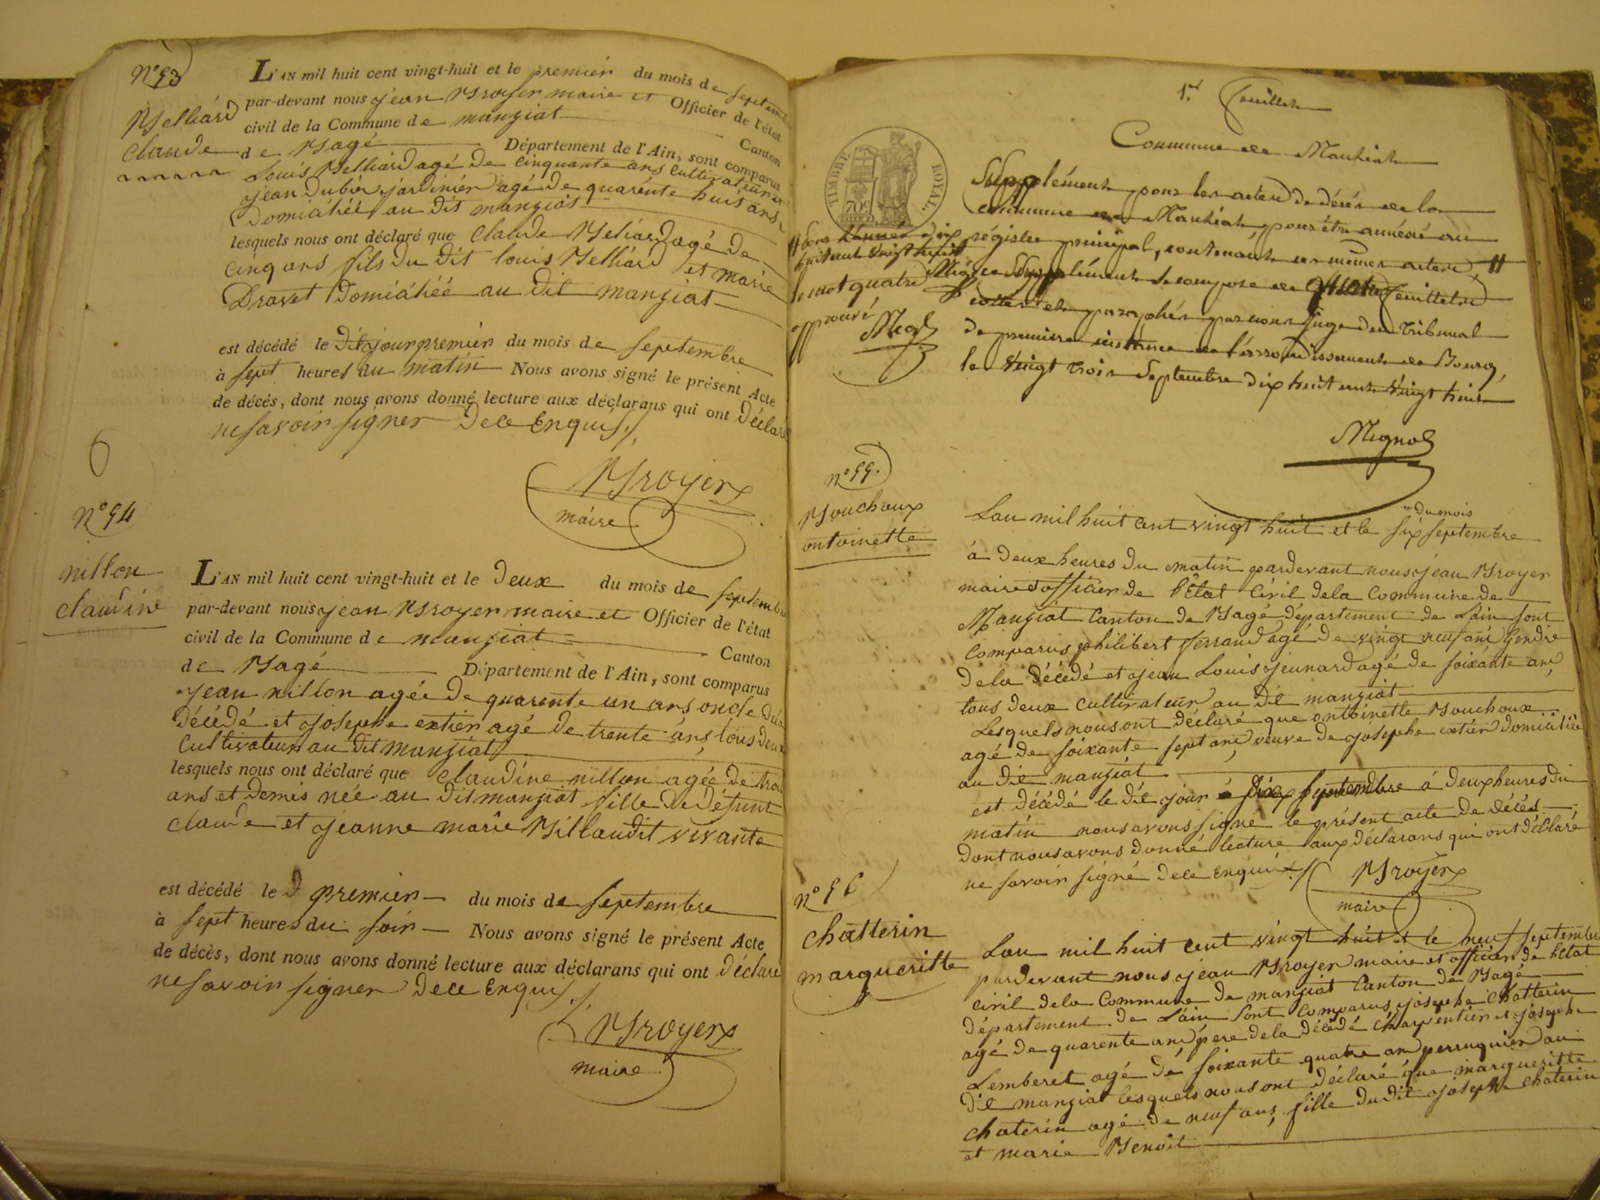 N° 53
Belliard
Claude
L'AN mil huit cent vingt-huit et le premier du mois de septembre
par-devant nous jean Broyer maire et Officier de l'état
civil de la Commune de manziat Canton
de Bagé Département de l'Ain, sont comparus
Louis Belliard agé de cinquante ans Cultivateur et
jean Dubié jardinier agé de quarente huit ans,
Domiciliée au dit manziat
lesquels nous ont déclaré que Claude Beliard agé de
cinq ans fils du dit louis Belliard et marie
Dravet Domiciliée au dit manziat
est décédé le dit jour premier du mois de septembre
à sept heures du matin Nous avons signé le présent Acte
de décès, dont nous avons donné lecture aux déclarans qui ont déclaré
ne savoir signer De ce Enquis
Broyer
maire
6
N° 54
nillon
claudine
L'AN mil huit cent vingt-huit et le Deux du mois de septembre
par-devant nous jean Broyer maire et Officier de l'état
civil de la Commune de manziat Canton
de Bagé Département de l'Ain, sont comparus
jean nillon agée de quarente un ans oncle dela
Décédé et josephe extier agé de trente ans tous deux
Cultivateur au dit manziat
lesquels nous ont déclaré que claudine nillon agée de trois
ans et demis née au dit manziat fille De Défunt
claude et jeanne marie Billaudit vivante
est décédé le premier du mois de septembre
à sept heures du soir Nous avons signé le présent Acte
de décès, dont nous avons donné lecture aux déclarans qui ont déclaré
ne savoir signer De ce Enquis
Broyer
maire
1er feuillet
Commune de Manziat
TIMBRE ROYAL
70c
Supplément pour les actes de décès de la
commune de Manziat, pour être annexé au
régistre principal, contenant les mêmes actes,
le mot quatre
approuvé
Mign
Supplément se compose de feuillets
cottés et paraphés par nous juge du tribunal
de première instance de l'arrondissement de Bourg,
le vingt trois Septembre dix huit cent vingt huit
Mignot
n° 55.
Bouchoux
antoinette
Lan mil huit cent vingt huit et le six du mois septembre
à deux heures du matin pardevant nous jean Broyer
maire et officier de l'État Civil dela Commune de
Manziat Canton de Bagé département de Lain sont
Comparus philibert ferrand agé de vingt neuf ans gendre
dela décédé et jean Louis jeunard agé de soixante ans
tous deux cultivateur au dit manziat
Lesquels nous ont déclaré que antoinette Bouchoux
agé de soixante sept ans veuve de josephe extier domiciliée
au dit manziat
est décédé le dit jour six septembre à deux heures du
matin nous avons signé le présent acte de décés
dont nous avons donné lecture aux déclarans qui ont déclaré
ne savoir signé de ce Enquis
Broyer
maire
n° 56
chatterin
margueritte
Lan mil huit cent vingt huit et le neuf septembre
pardevant nous jean Broyer maire et officier de l'Etat
civil dela Commune de manziat Canton de Bagé
département de Lain sont Comparus josephe chatterin
agé de quarente ans pere dela décédé charpentier et josephe
Lemberet agé de soixante quatre ans perruquier au
dit manziat lesquels nous ont déclaré que margueritte
chaterin agé de neuf ans, fille du dit josephe chaterin
et marie Benoit